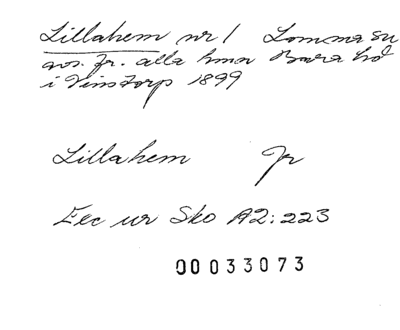 Lillahem nr 1 Lomma sn
avs. fr. alla hmn Bara hd
i Vinstorp 1899
Lillahem Jr
Exc ur Sko A2:223
00033073